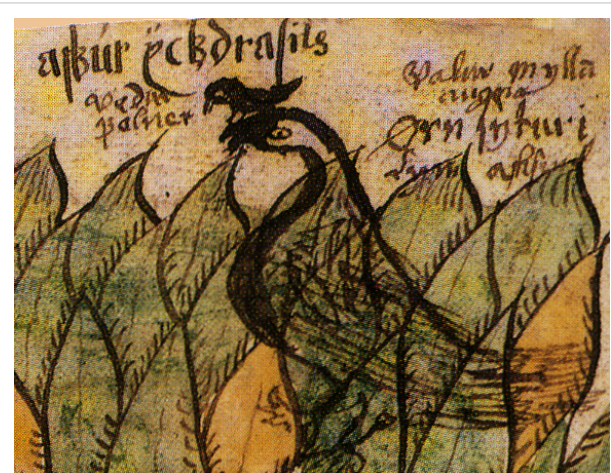 aſkúr ÿckdraſils
vedur
palner
Valur mylla
augna
Ørn ſytur i